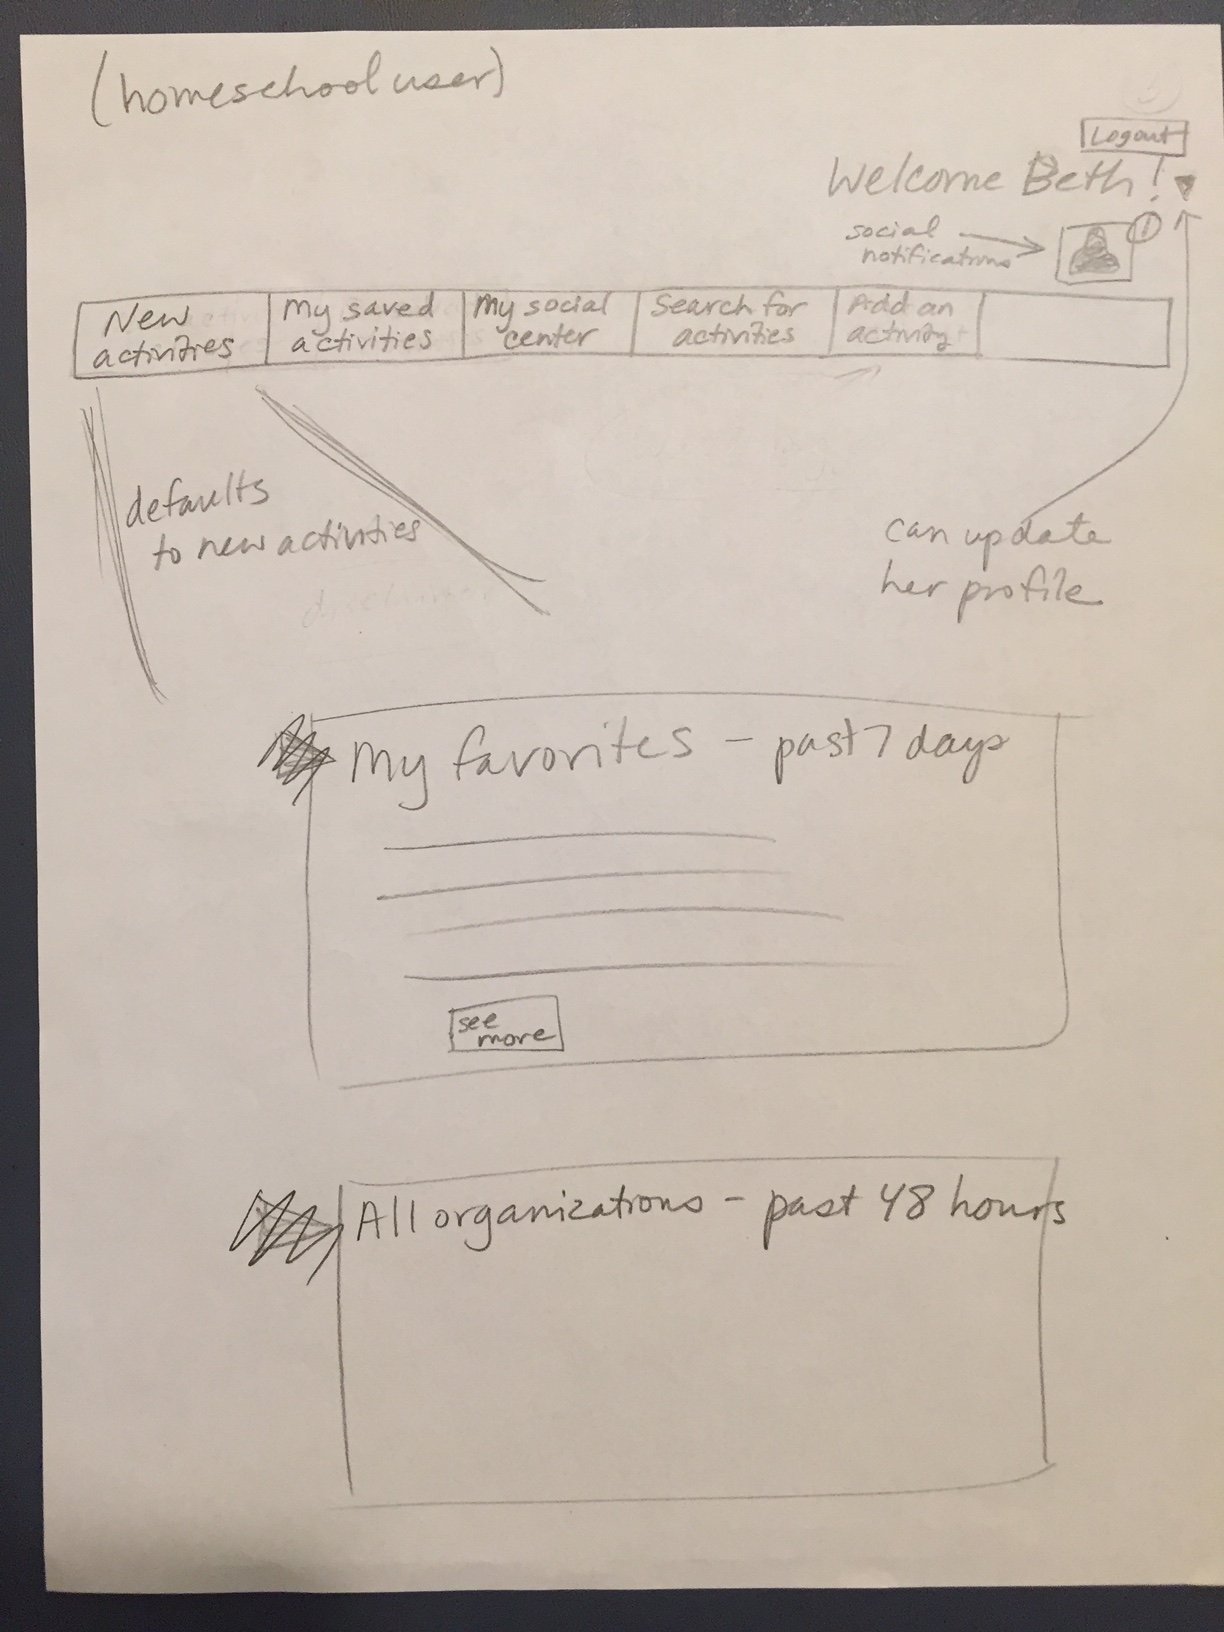 (homeschool user)
Logout
Welcome Beth!
social
notifications
1
New
activities
My saved
activities
My social
center
Search for
activities
Add an
activity
defaults
to new activities
can update
her profile
My favorites - past 7 days
see
more
All organizations - past 48 hours